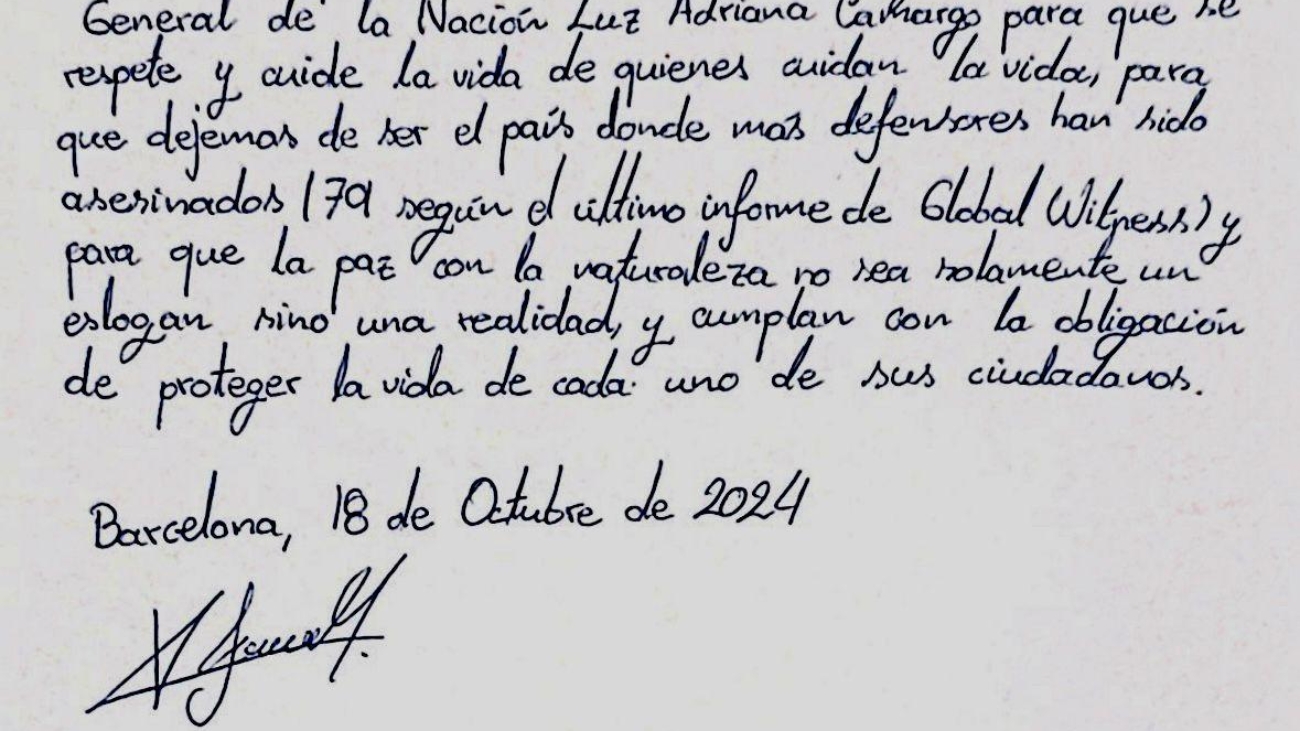 General de la Nación Luz Adriana Camargo para que se
respete y cuide la vida de quienes cuidan la vida, para
que dejemos de ser el país donde más defensores han sido
asesinados (79 según el último informe de Global Witness) y
para que la paz con la naturaleza no sea solamente un
eslogan sino una realidad, y cumplan con la obligación
de proteger la vida de cada uno de sus ciudadanos.
Barcelona, 18 de Octubre de 2024